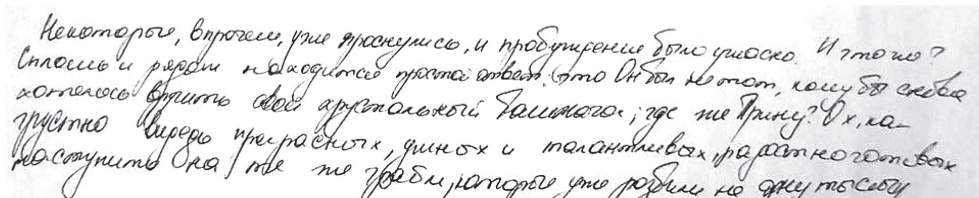 Некоторые, впрочем, уже проснулись, и пробуждение было ужасно. И что же?
Сплошь и рядом находится простой ответ: это Он был не тот, кому бы снова
хотелось вручить свой хрустальный башмачок; где же Принц? Ох, ка-
грустно видеть прекрасных, умных и талантливых, радостно готовых
наступить на те же грабли, которые уже разбили не одну тысячу